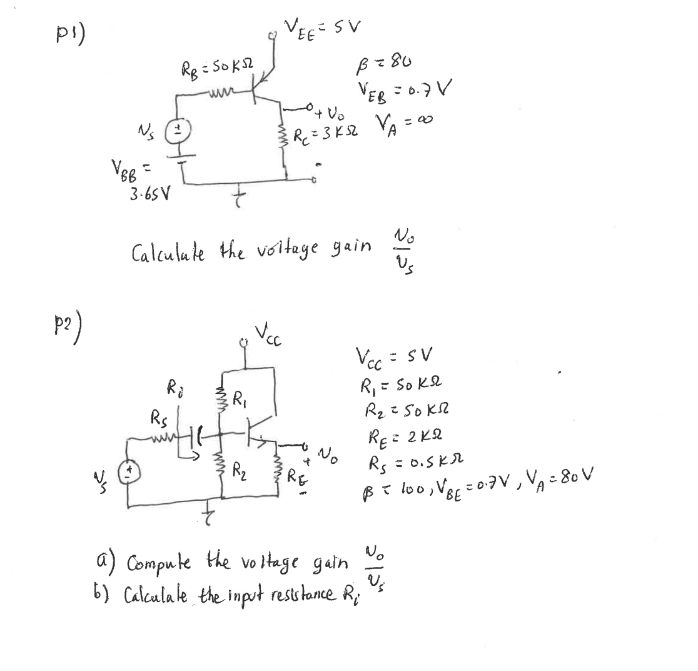 P1)
VEE = 5V
RB = 50KΩ
β = 80
VEB = 0.7V
VA = ∞
+ vo
RC = 3KΩ
-
vs
+
VBB =
3.65V
Calculate the voltage gain vo/vs
P2)
VCC
VCC = 5V
R1 = 50KΩ
R2 = 50KΩ
RE = 2KΩ
RS = 0.5KΩ
β = 100, VBE = 0.7V, VA = 80V
Ri
RS
R1
vs
+
R2
RE
+ vo
-
a) Compute the voltage gain vo/vs
b) Calculate the input resistance Ri